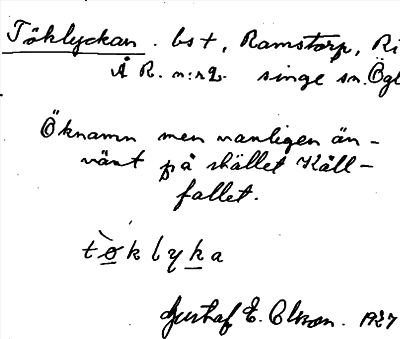 Töklyckan. bst, Ramstorp, Ri
Å R. n:r 2. singe sn. Ögl
Öknamn men vanligen än-
vänt på stället Käll-
fallet.
tòklyka
Gustaf E. Olsson. 1927